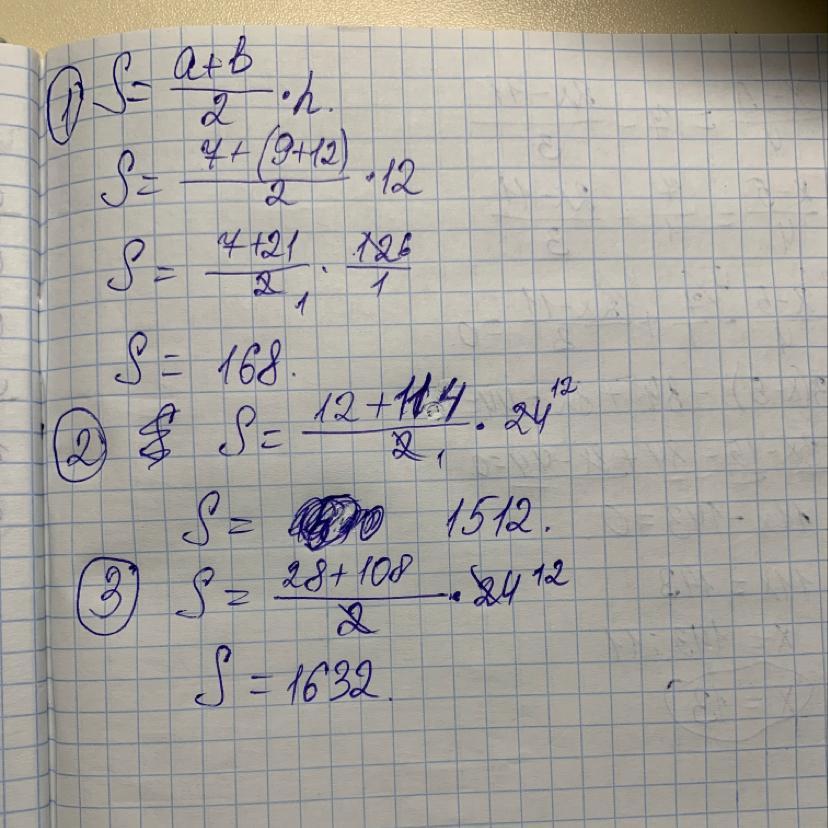 ① S = a+b/2 · h.
S = 7+(9+12)/2 · 12
S = 7+21/2 1 · 126/1
S = 168.
② S = 12+114/2 1 · 24 12
S = 1512.
③ S = 28+108/2 · 24 12
S = 1632.